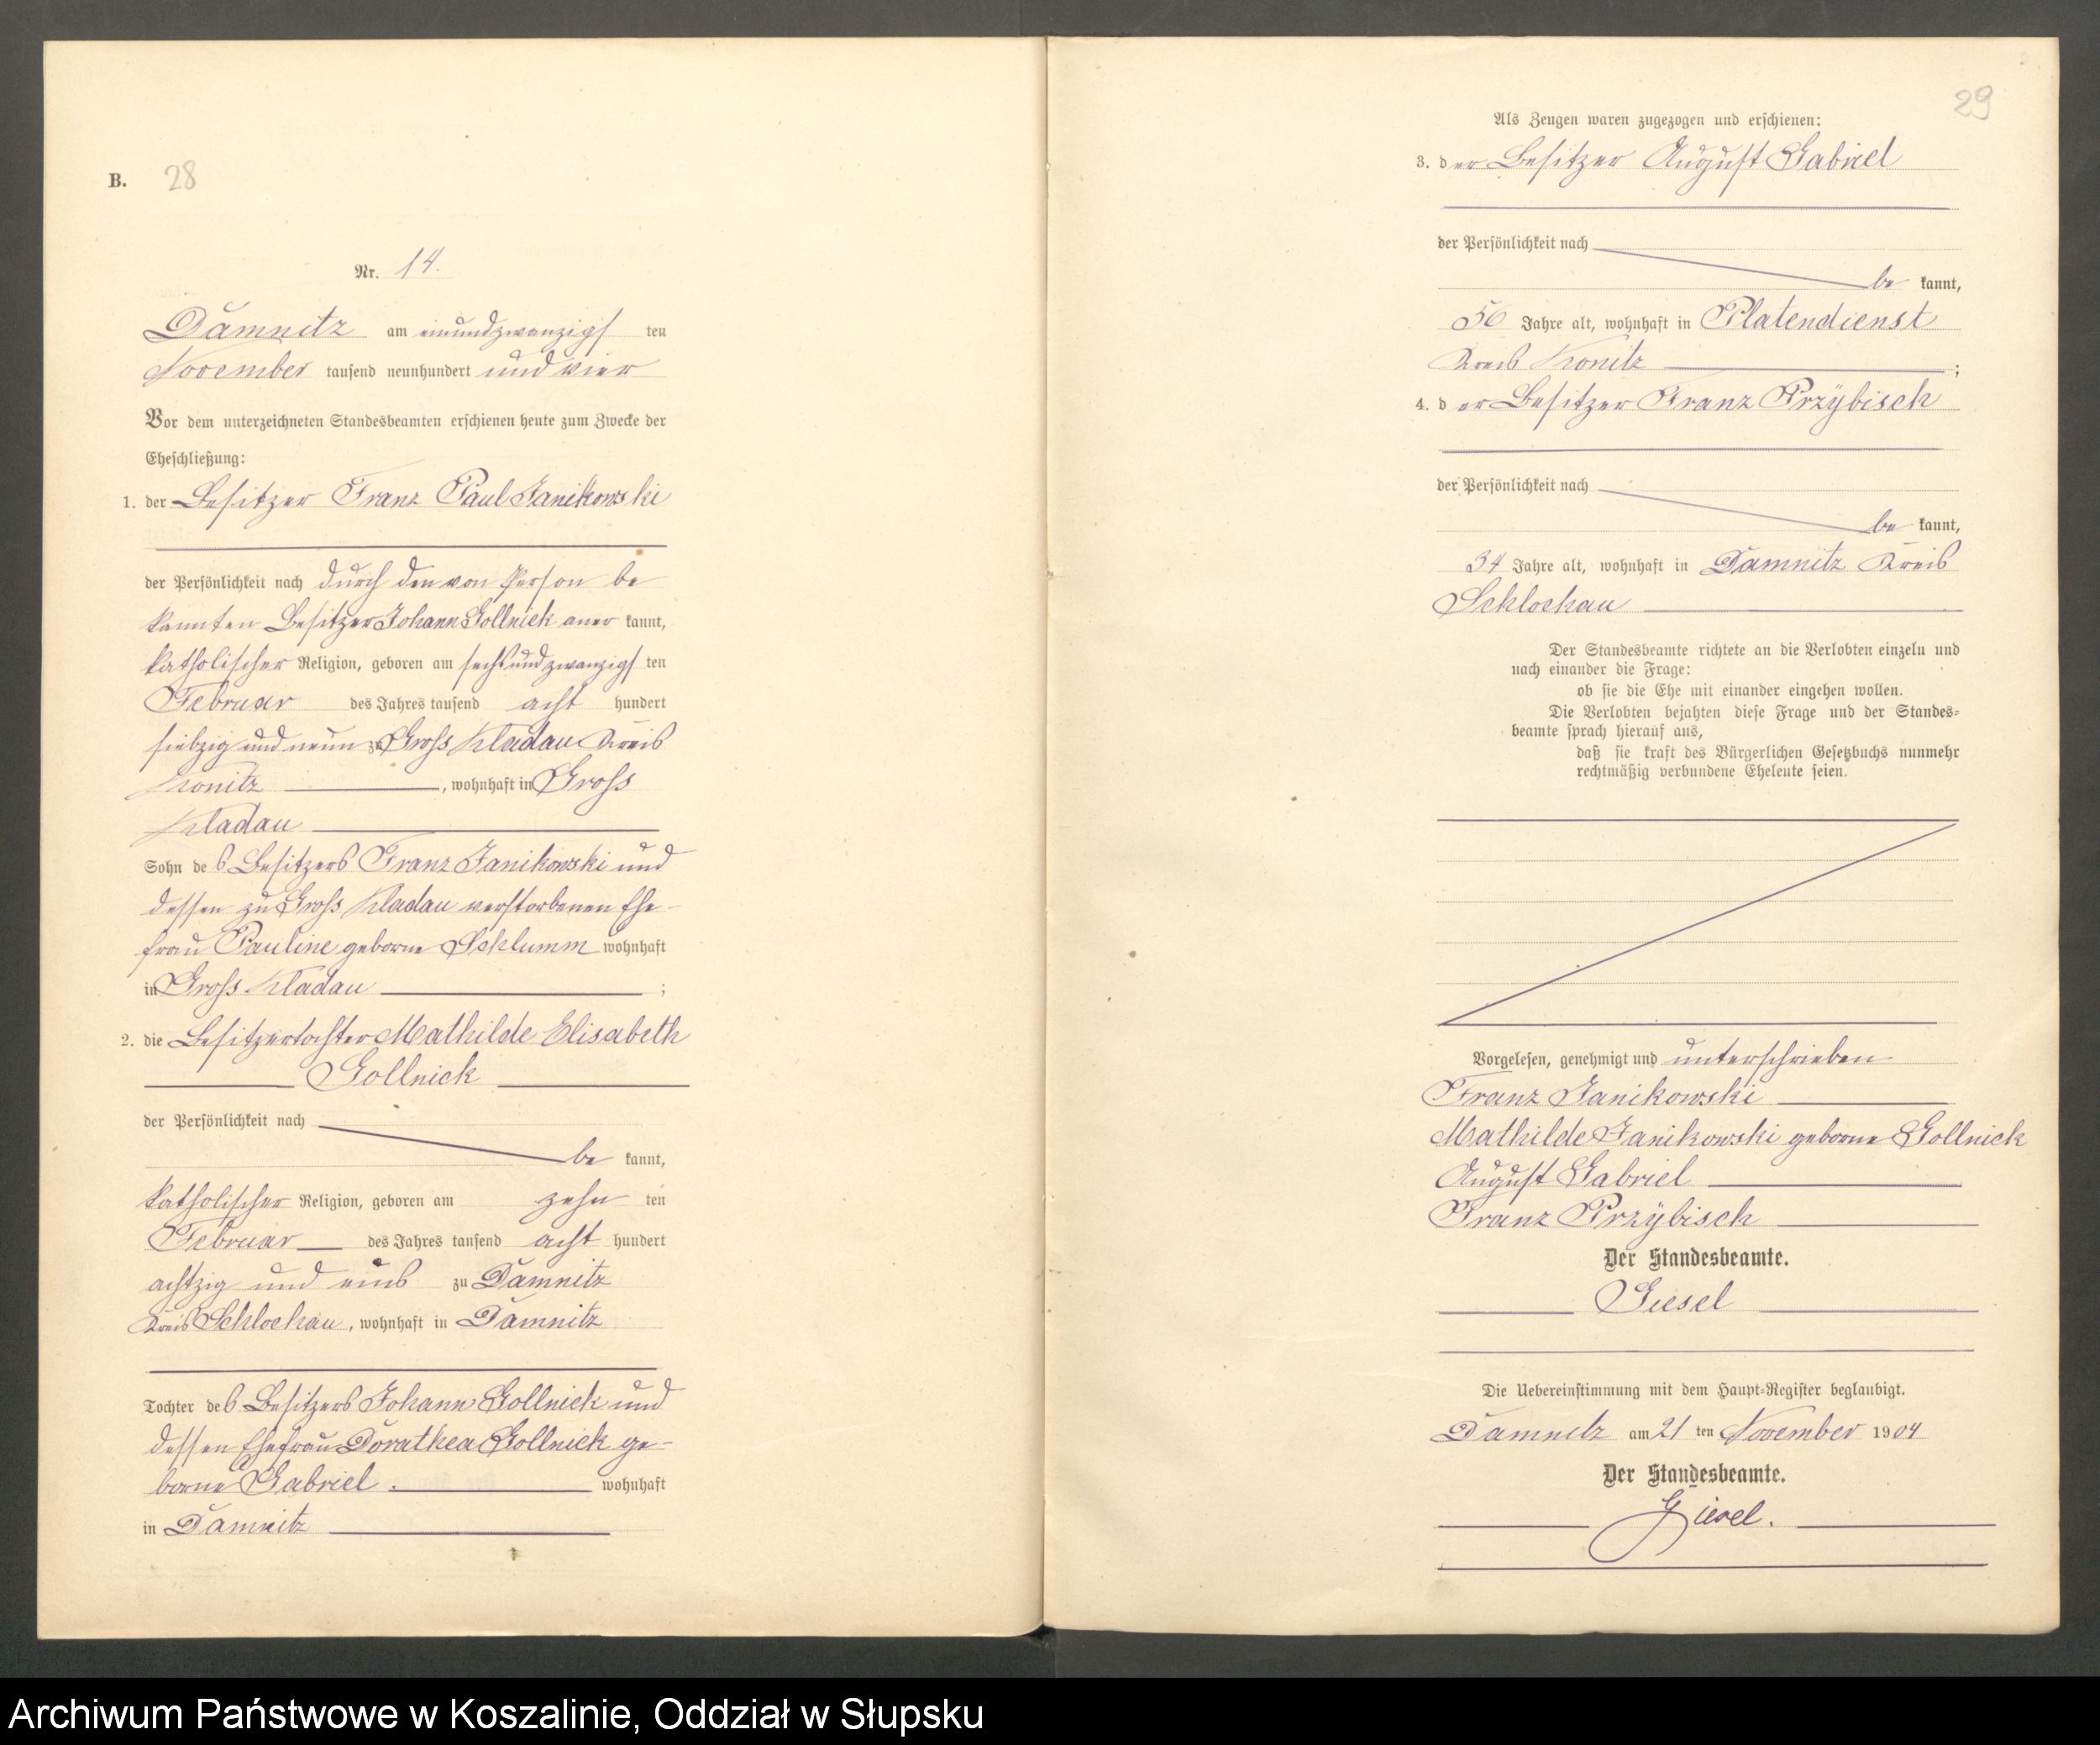 B. 28
Nr. 14.
Damnitz am einundzwanzigsten
November tausend neunhundert und vier
Vor dem unterzeichneten Standesbeamten erschienen heute zum Zwecke der
Eheschließung:
1. der Besitzer Franz Paul Janikowski
der Persönlichkeit nach durch den von Person be
kannten Besitzer Johann Gollnick aner kannt,
katholischer Religion, geboren am sechsundzwanzigsten
Februar des Jahres tausend acht hundert
siebzig und neun zu Gross Kladau Kreis
Konitz, wohnhaft in Gross
Kladau
Sohn des Besitzers Franz Janikowski und
dessen zu Gross Kladau verstorbenen Ehe-
frau Pauline geborne Schlumm wohnhaft
in Gross Kladau ;
2. die Besitzertochter Mathilde Elisabeth
Gollnick
der Persönlichkeit nach
be kannt,
katholischer Religion, geboren am zehn ten
Februar des Jahres tausend acht hundert
achtzig und eins zu Damnitz
Kreis Schlochau, wohnhaft in Damnitz
Tochter des Besitzers Johann Gollnick und
dessen Ehefrau Dorathea Gollnick ge-
borne Gabriel. wohnhaft
in Damnitz
29
Als Zeugen waren zugezogen und erschienen:
3. der Besitzer August Gabriel
der Persönlichkeit nach
be kannt,
56 Jahre alt, wohnhaft in Platendienst
Kreis Konitz ;
4. der Besitzer Franz Przÿbisch
der Persönlichkeit nach
be kannt,
34 Jahre alt, wohnhaft in Damnitz Kreis
Schlochau
Der Standesbeamte richtete an die Verlobten einzeln und
nach einander die Frage:
ob sie die Ehe mit einander eingehen wollen.
Die Verlobten bejahten diese Frage und der Standes-
beamte sprach hierauf aus,
daß sie kraft des Bürgerlichen Gesetzbuchs nunmehr
rechtmäßig verbundene Eheleute seien.
Vorgelesen, genehmigt und unterschrieben
Franz Janikowski
Mathilde Janikowski geborne Gollnick
August Gabriel
Franz Przÿbisch
Der Standesbeamte.
Giesel
Die Uebereinstimmung mit dem Haupt-Register beglaubigt.
Damnitz am 21 ten November 1904
Der Standesbeamte.
Giesel.
Archiwum Państwowe w Koszalinie, Oddział w Słupsku